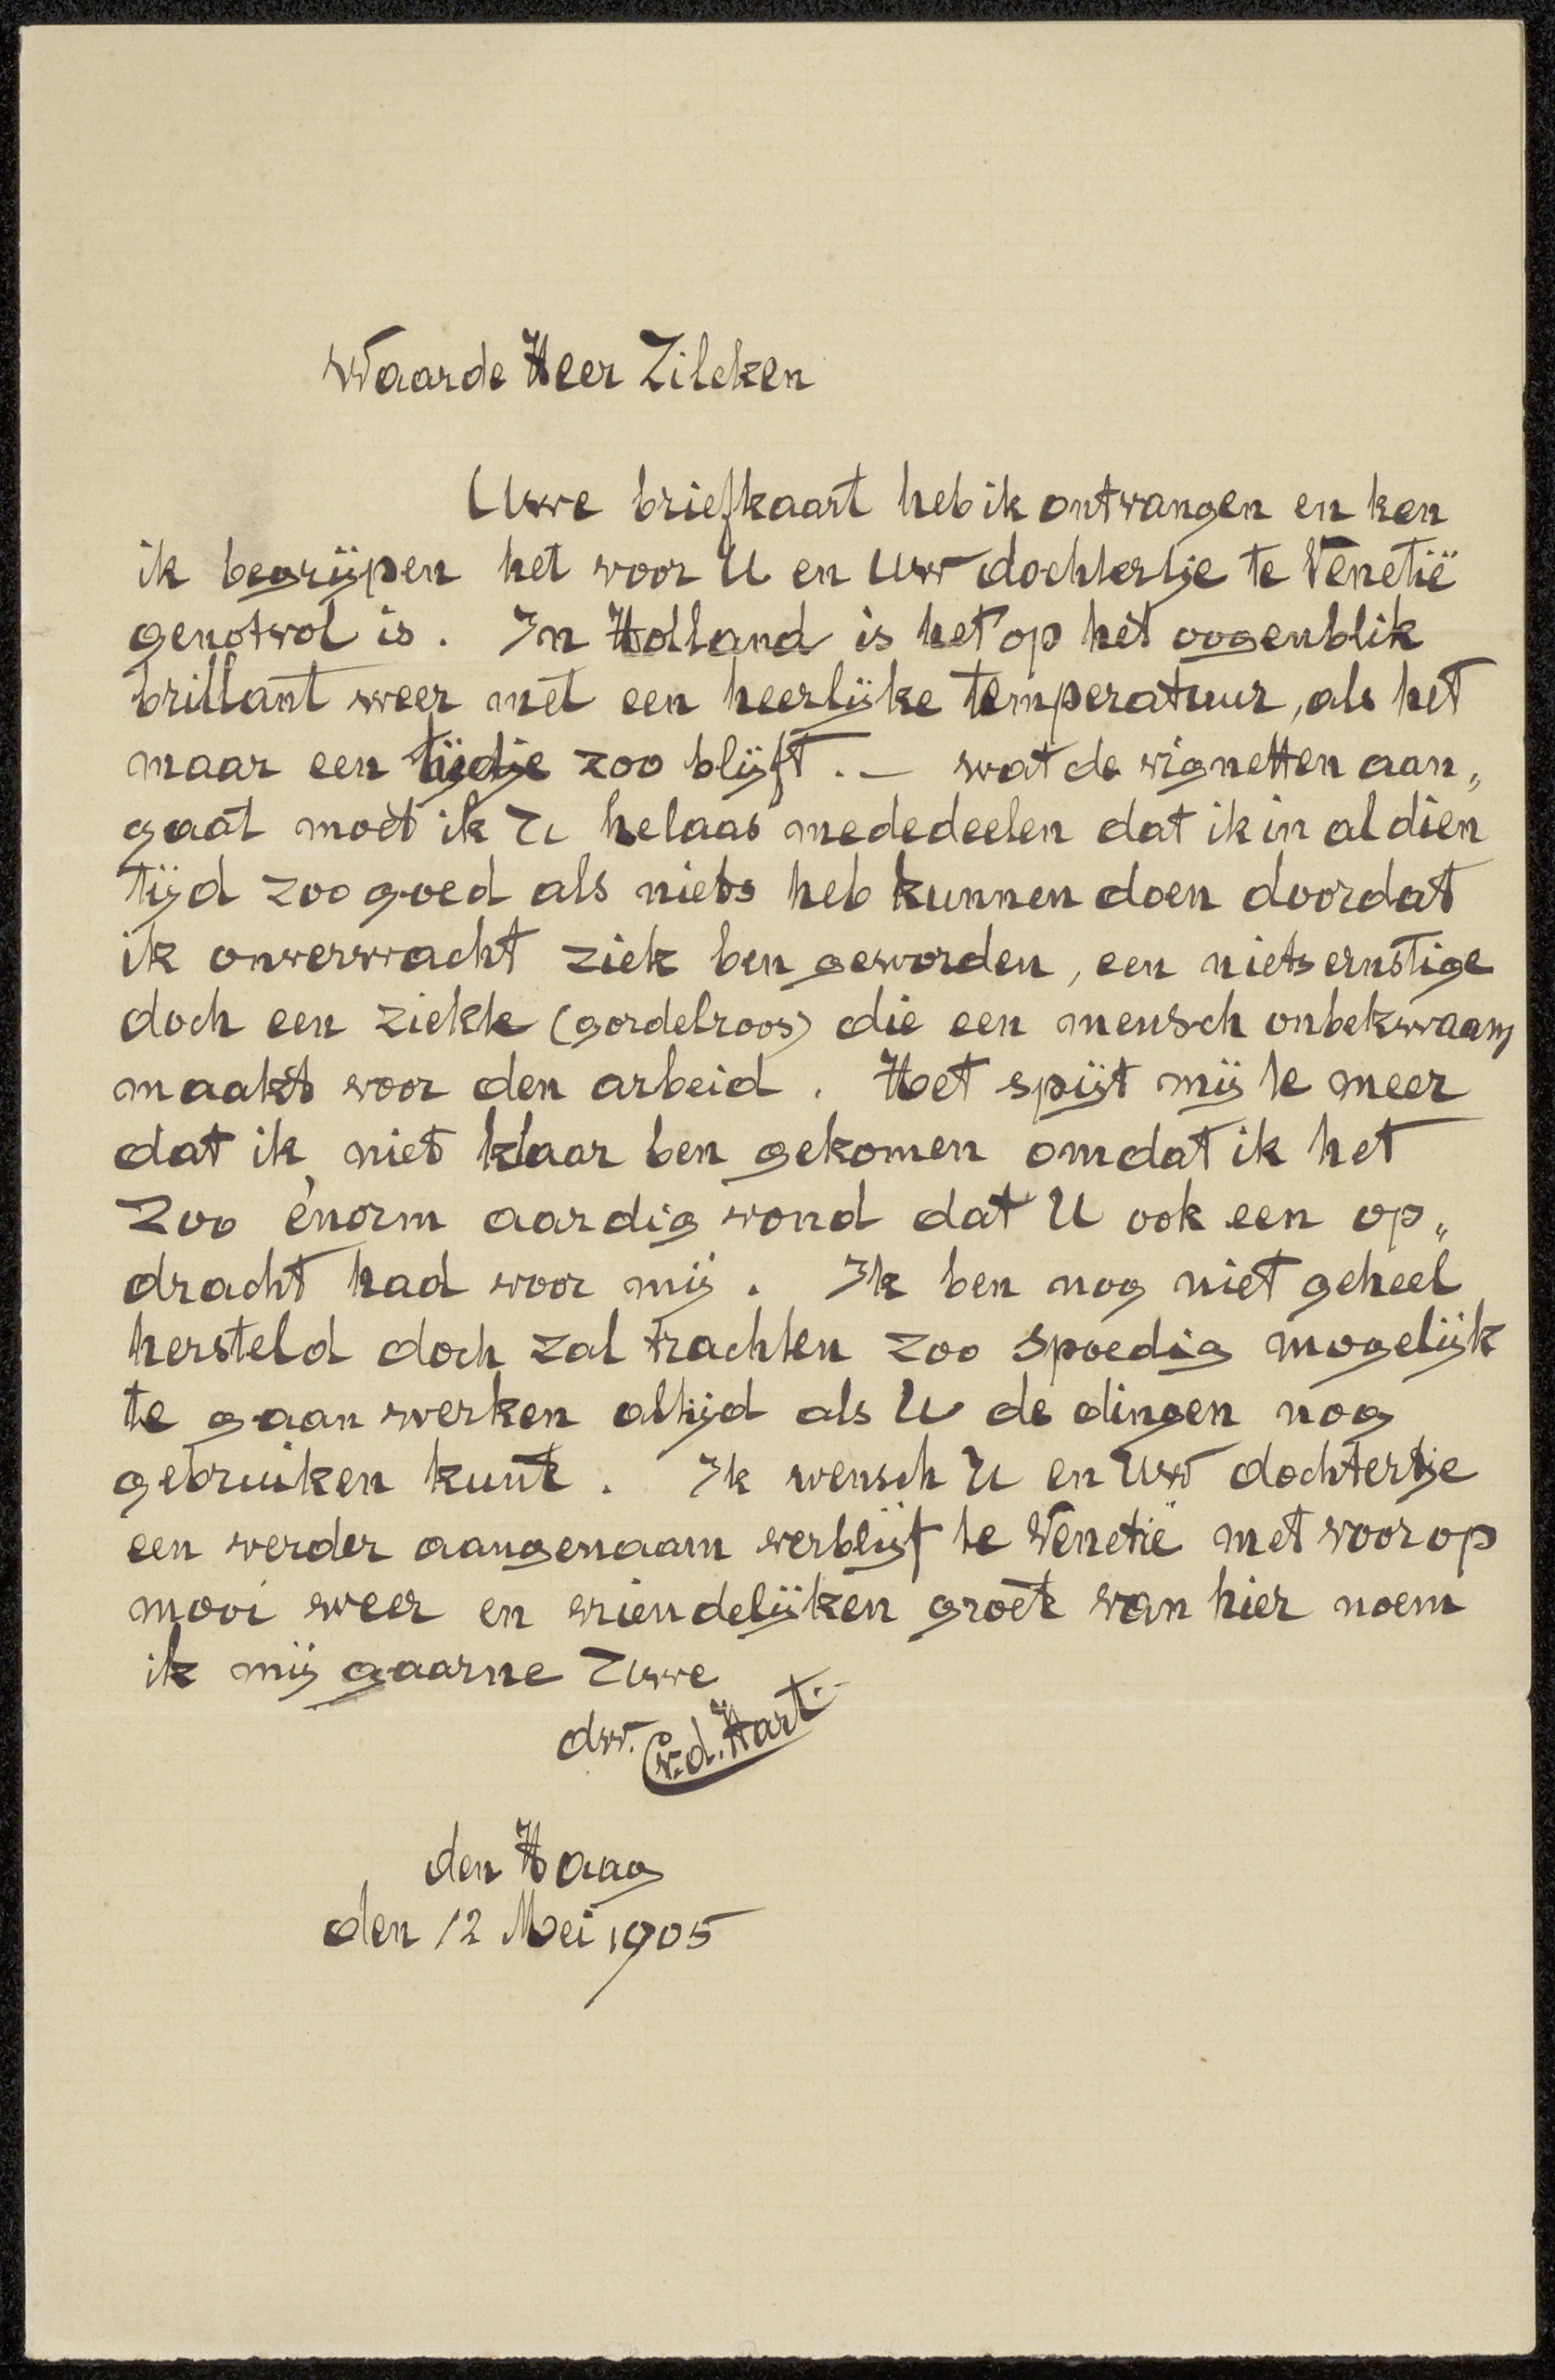 Waarde Heer Zilcken
Uwe briefkaart heb ik ontvangen en ken
ik begrijpen het voor U en Uw dochtertje te Venetië
genotvol is. In Holland is het op het oogenblik
brillant weer met een heerlijke temperatuur, als het
maar een tijdje zoo blijft. — wat de vignetten aan„
gaat moet ik U helaas mededeelen dat ik in al dien
tijd zoo goed als niets heb kunnen doen doordat
ik onverwacht ziek ben geworden, een niets ernstige
doch een ziekte (gordelroos) die een mensch onbekwaam
maakt voor den arbeid. Het spijt mij te meer
dat ik niet klaar ben gekomen omdat ik het
zoo énorm aardig vond dat U ook een op„
dracht had voor mij. Ik ben nog niet geheel
hersteld doch zal trachten zoo spoedig mogelijk
te gaan werken altijd als U de dingen nog
gebruiken kunt. Ik wensch U en Uw dochtertje
een verder aangenaam verblijf te Venetië met voorop
mooi weer en vriendelijken groet van hier noem
ik mij gaarne Uwe
dw. C v. d. Hart.
den Haag
den 12 Mei 1905